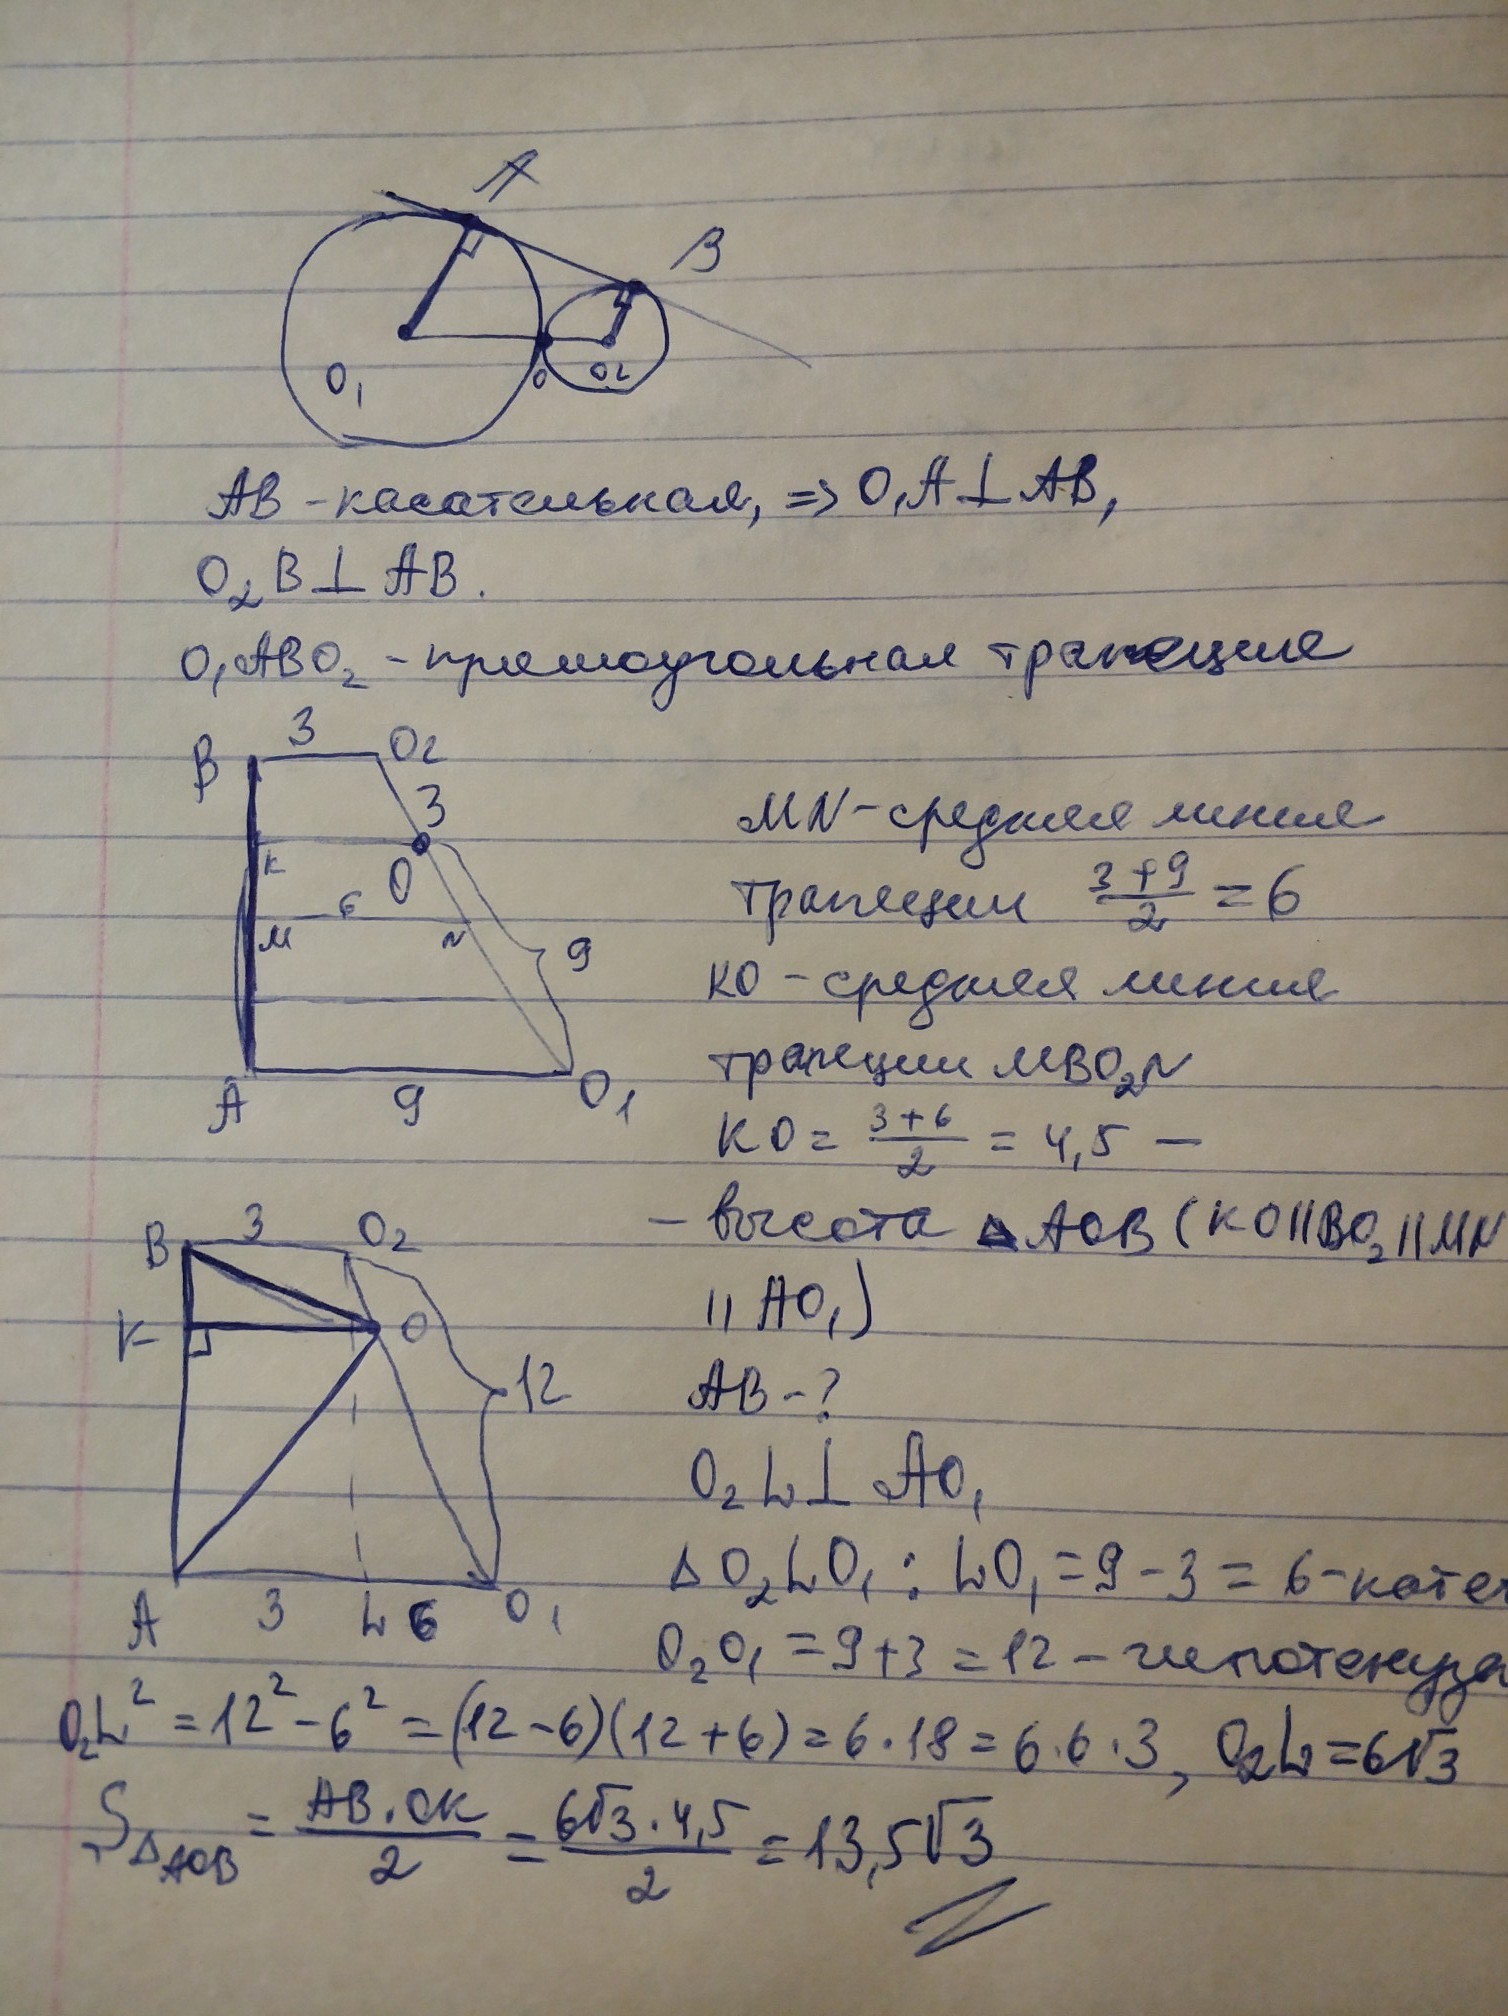 A
B
O₁ O O₂
AB - касательная, => O₁A⊥AB,
O₂B⊥AB.
O₁ABO₂ - прямоугольная трапеция
B 3 O₂
3
K O
6
M N 9
A 9 O₁
MN - средняя линия
трапеции (3+9)/2 = 6
KO - средняя линия
трапеции MBO₂N
KO = (3+6)/2 = 4,5 —
— высота △AOB (KO||BO₂||MN
|| AO₁)
B 3 O₂
K O
12
A 3 L 6 O₁
AB - ?
O₂L⊥AO₁
△O₂LO₁: LO₁ = 9 - 3 = 6 - катет
O₂O₁ = 9+3 = 12 - гипотенуза
O₂L² = 12² - 6² = (12-6)(12+6) = 6·18 = 6·6·3, O₂L = 6√3
S△AOB = AB·OK/2 = 6√3·4,5/2 = 13,5√3